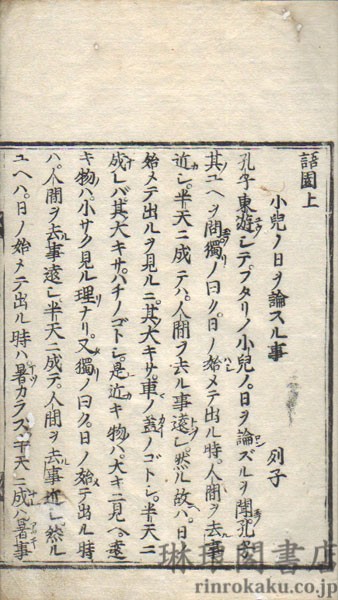 語園上
小兒ノ日ヲ論スル事 列子
孔子東游シテフタリノ小兒ノ日ヲ論ズルヲ聞孔子
其ユヘヲ問獨ノ曰ク日ノ始メテ出ル時人間ヲ去事
近シ半天ニ成テハ人間ヲ去ル事遠シ然ル故ハ日ノ
始メテ出ルヲ見ルニ其大キサ車ノ蓋ノゴトシ半天ニ
成レバ其大キサハチノゴトシ是近キ物ハ大キニ見ヘ遠
キ物ハ小サク見ル理ナリ又獨ノ曰ク日ノ始テ出ル時
ハ人間ヲ去事遠シ半天ニ成テ人間ヲ去事近シ然ル
ユヘハ日ノ始メテ出ル時ハ暑カラス半天ニ成ハ暑事
琳琅閣書店
rinrokaku.co.jp